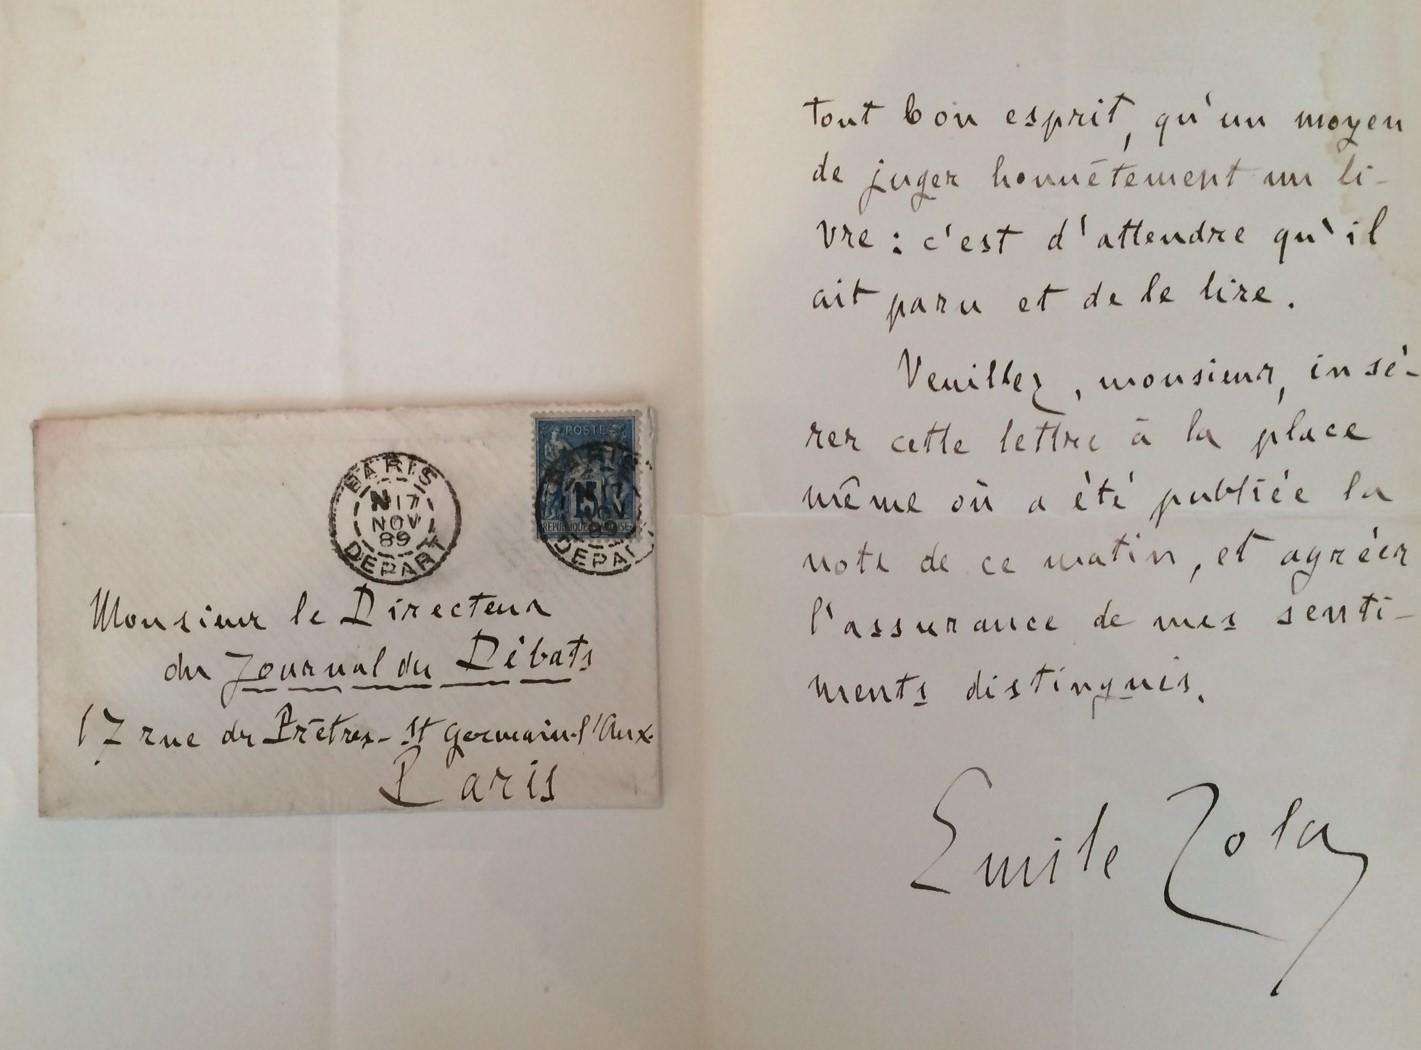 PARIS
N 17
NOV
89
DEPART
POSTES
PARIS
17
NOV
89
DEPART
REPUBLIQUE FRANÇAISE
Monsieur le Directeur
du Journal du Débats
17 rue des Prêtres-St Germain-l'Aux.
Paris
tout bon esprit, qu'un moyen
de juger honnêtement un li-
vre : c'est d'attendre qu'il
ait paru et de le lire.
Veuillez, monsieur, insé-
rer cette lettre à la place
même où a été publiée la
note de ce matin, et agréer
l'assurance de mes senti-
ments distingués.
Emile Zola